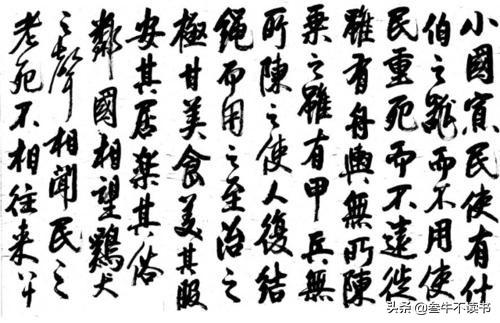 小國寡民使有什
伯之器而不用使
民重死而不遠徙
雖有舟輿無所陳
乘之雖有甲兵無
所陳之使人復結
繩而用之至治之
極甘美食美其服
安其居樂其俗
鄰國相望鷄犬
之聲相聞民之
老死不相往来八十
头条 @叁牛不读书